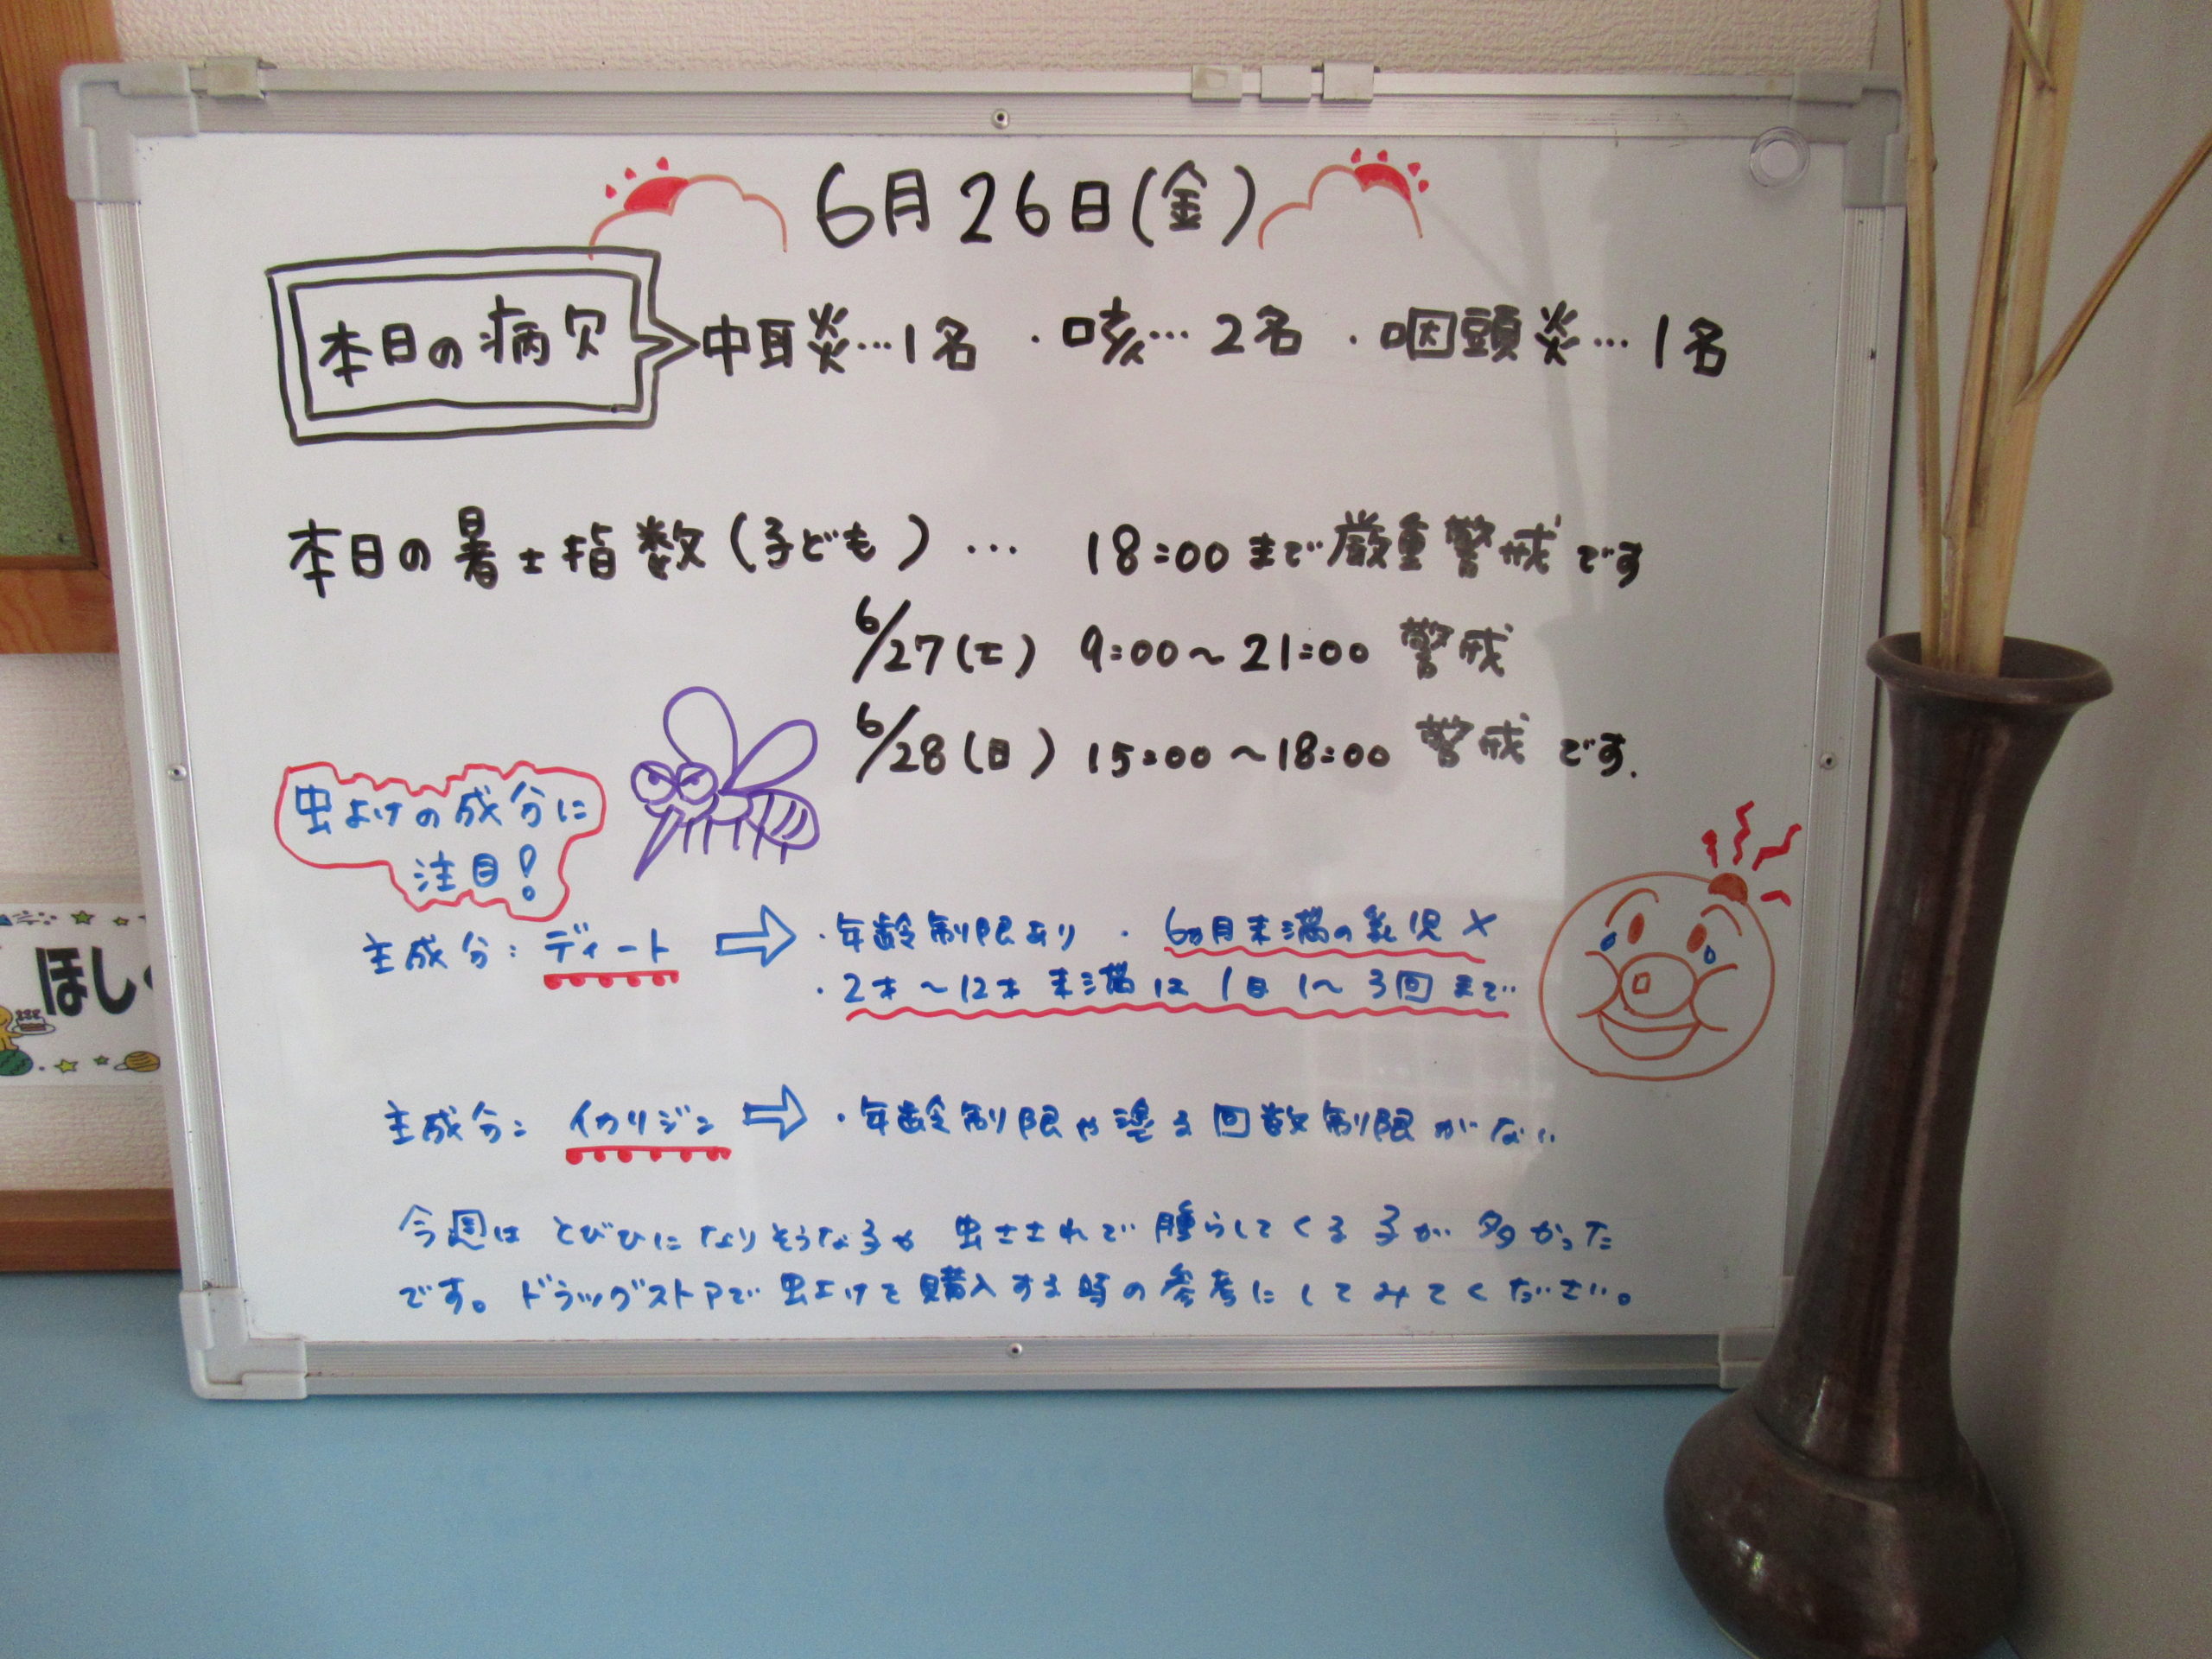 6月26日(金)
本日の病欠
中耳炎…1名 ・咳…2名 ・咽頭炎…1名
本日の暑さ指数(子ども)… 18:00まで厳重警戒です
6/27(土) 9:00〜21:00 警戒
6/28(日) 15:00〜18:00 警戒です.
虫よけの成分に
注目!
主成分:ディート ⇨ ・年齢制限あり ・6ヵ月未満の乳児×
・2才〜12才未満は1日1〜3回まで
主成分:イカリジン ⇨ ・年齢制限や塗る回数制限がない
今週はとびひになりそうな子や虫さされで腫らしてくる子が多かった
です。ドラッグストアで虫よけを購入する時の参考にしてみてください。
ほし